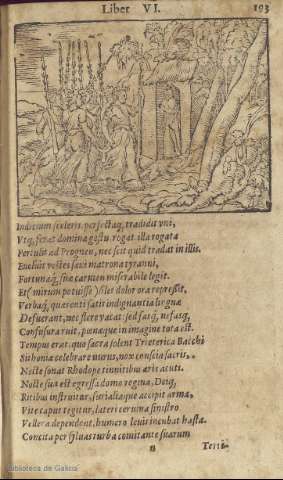 Liber VI. 193
Indicium sceleris. perfectaq; tradidit vni,
Vtq; ferat dominæ gestu rogat. illa rogata
Pertulit ad Prognen, nec scit quid tradat in illis.
Euoluit vestes sæui matrona tyranni,
Fortunæq; suæ carmen miserabile legit.
Et (mirum potuisse) silet dolor ora repressit,
Verbaq; quærenti satis indignantia linguæ
Defuerant, nec flere vacat: sed fasq; nefasq;
Confusura ruit, pœnæque in imagine tota est.
Tempus erat, quo sacra solent Trieterica Bacchi
Sithoniæ celebrare nurus, nox conscia sacris,
Nocte sonat Rhodope tinnitibus æris acuti.
Nocte sua est egressa domo regina, Deiq;
Ritibus instruitur, furialiaque accipit arma,
Vite caput tegitur, lateri ceruina sinistro
Vellera dependent, humero leuis incubat hasta.
Concita per syluas turba comitante suarum
n Terri-
Biblioteca de Galicia